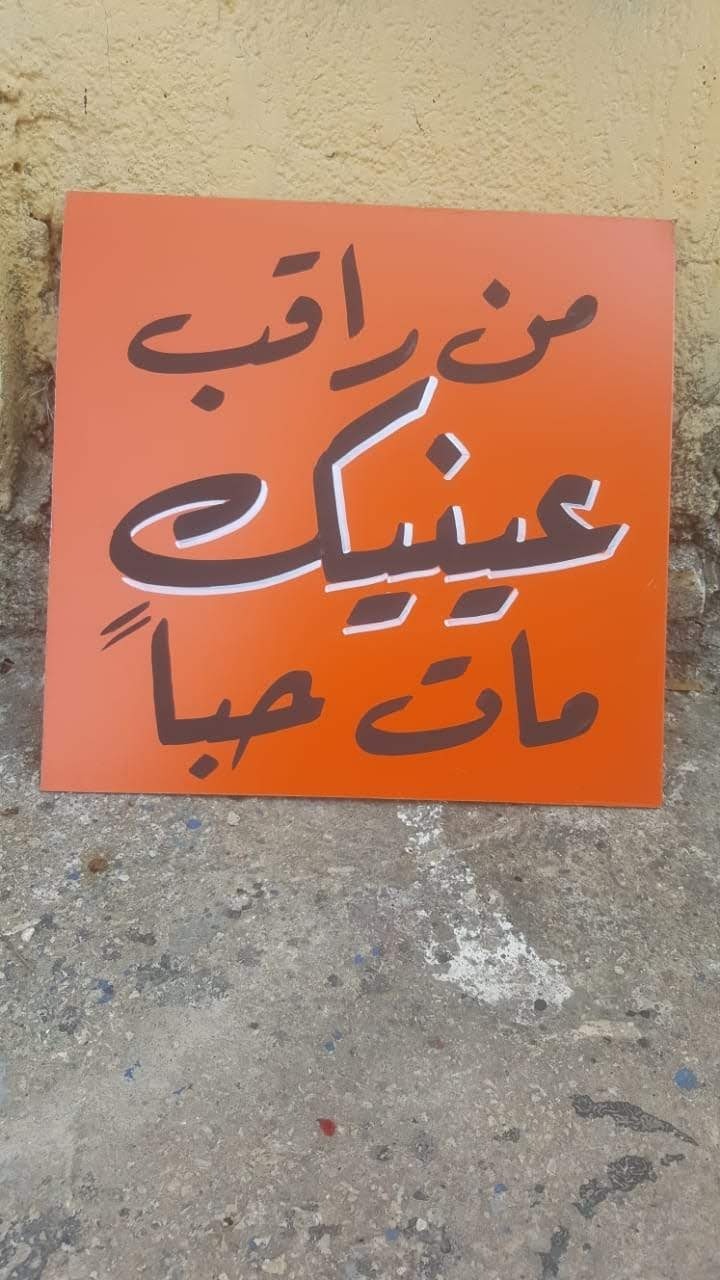 من راقب
عينيك
مات حباً